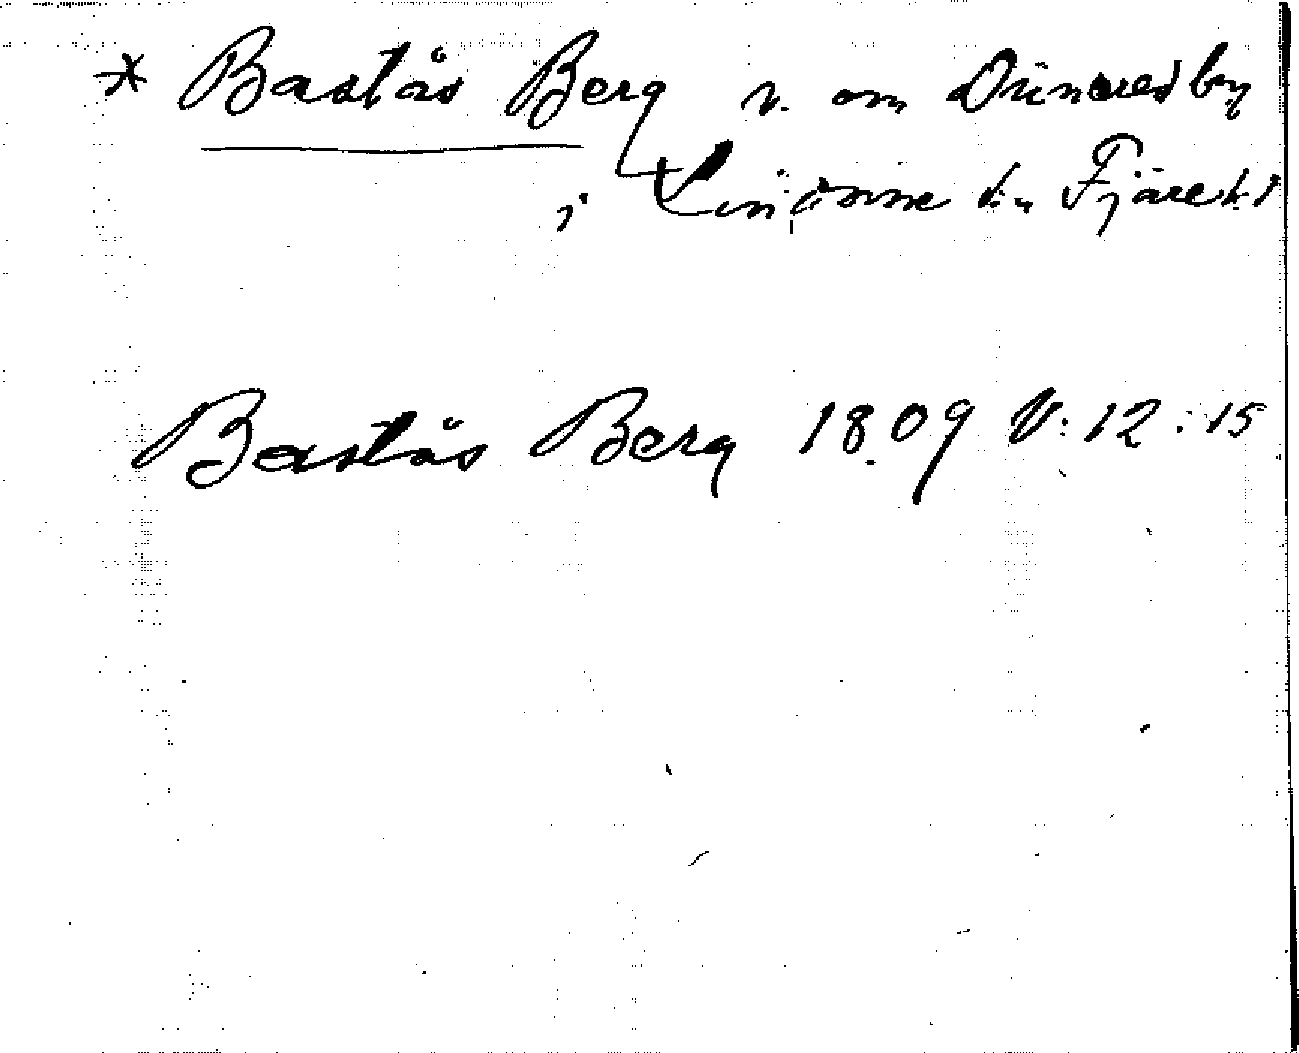 * Bastås Berg v. om Dünared by
i Lindome sn Fjäre hd
Bastås Berg 1809 V: 12: 15